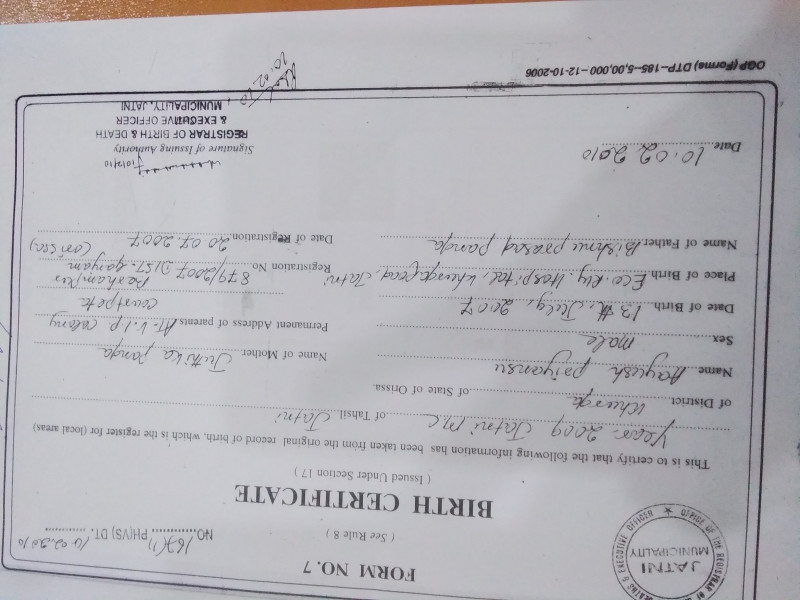 FORM NO. 7
( See Rule 8 )
NO. 167(1) PH(VS) DT. 10.02.2010
OFFICE OF THE REGISTRAR OF
& EXECUTIVE OFFICER
JATNI
MUNICIPALITY
BIRTH CERTIFICATE
( Issued Under Section 17 )
This is to certify that the following information has been taken from the original record of birth, which is the register for (local areas)
Year 2009 Jatni M.C of Tahsil Jatni
of District Khurda of State of Orissa.
Name Aayush priyansu
Name of Mother Juthika panda
Sex male
Permanent Address of parents At- V.I.P colony
Courtpeta
Date of Birth 13th July, 2007
Berhampur
Place of Birth Eco. Rly. Hospital, Khurda Road, Jatni
Registration No 879/2007 DIST- Ganjam
Name of Father Bishnu prasad panda
Date of Registration 20.07.2007 (orissa)
Date 10.02.2010
Signature of Issuing Authority
REGISTRAR OF BIRTH & DEATH
& EXECUTIVE OFFICER
MUNICIPALITY, JATNI
10.02.10
OGP (Forms) DTP--185--5,00,000--12-10-2006